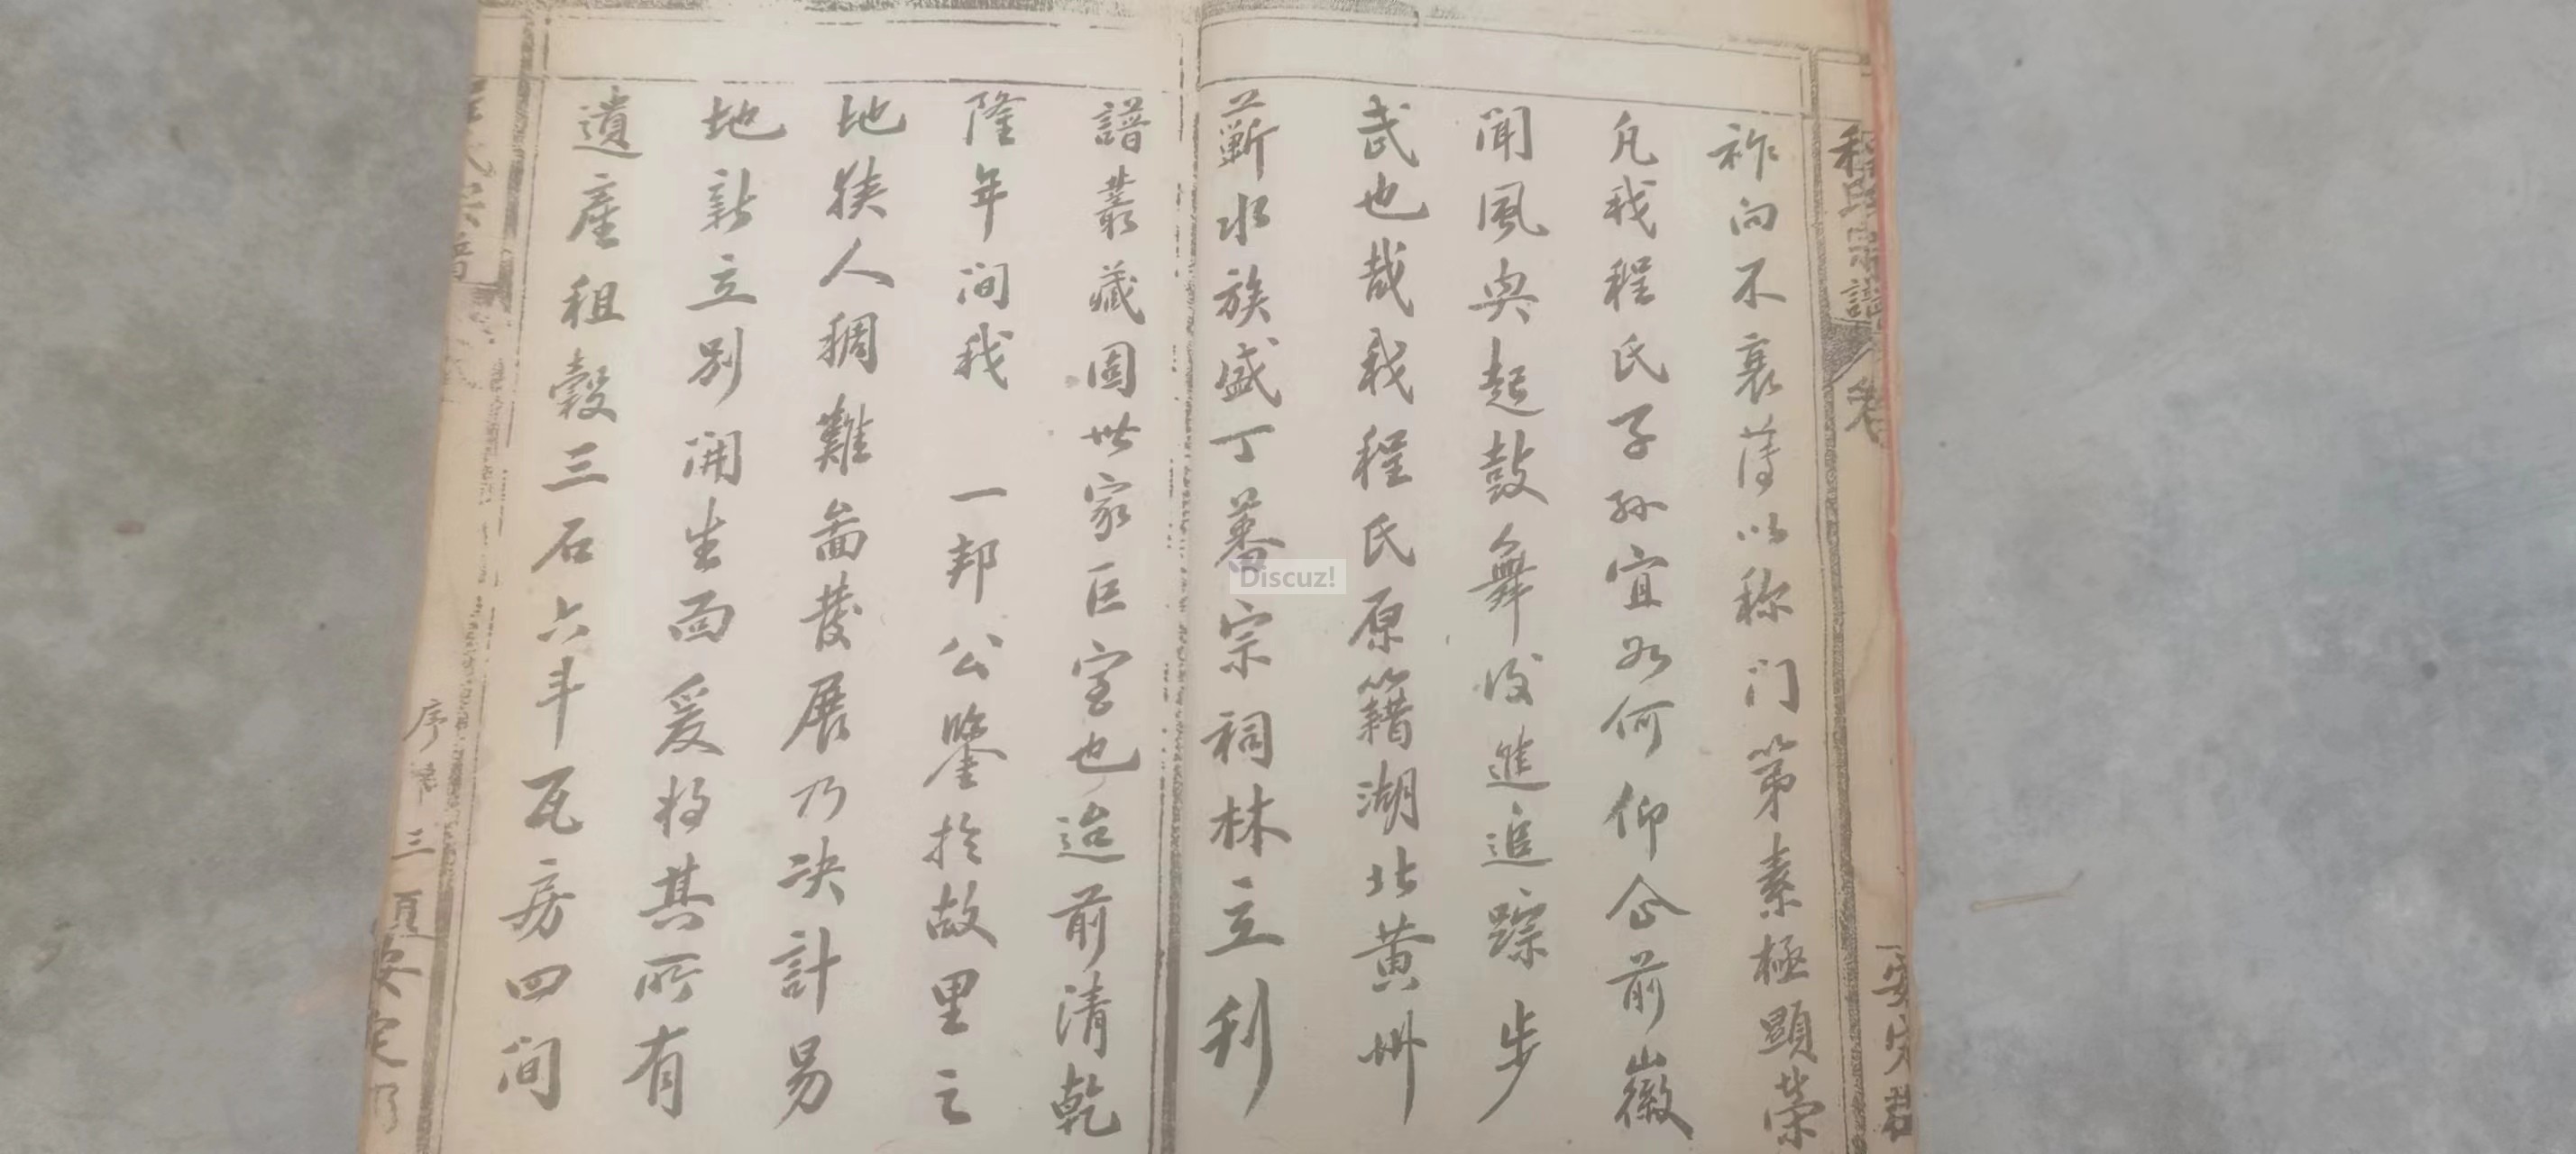 程氏宗譜 卷 安定郡
祚向不衰薄以称门第素極顯榮
凡我程氏子孙宜如何仰企前徽
闻風奥起鼓舞後進追踪步
武也哉我程氏原籍湖北黄州
蕲水族盛丁蕃宗祠林立刋
譜叢藏固世家巨室也迨前清乾
隆年间我 一邦公鑒於故里之
地狭人稠難啚發展乃决計易
地新立别開生面爰将其所有
遺産租穀三石六斗瓦房四间
氏宗譜 序 三頁 安定
Discuz!